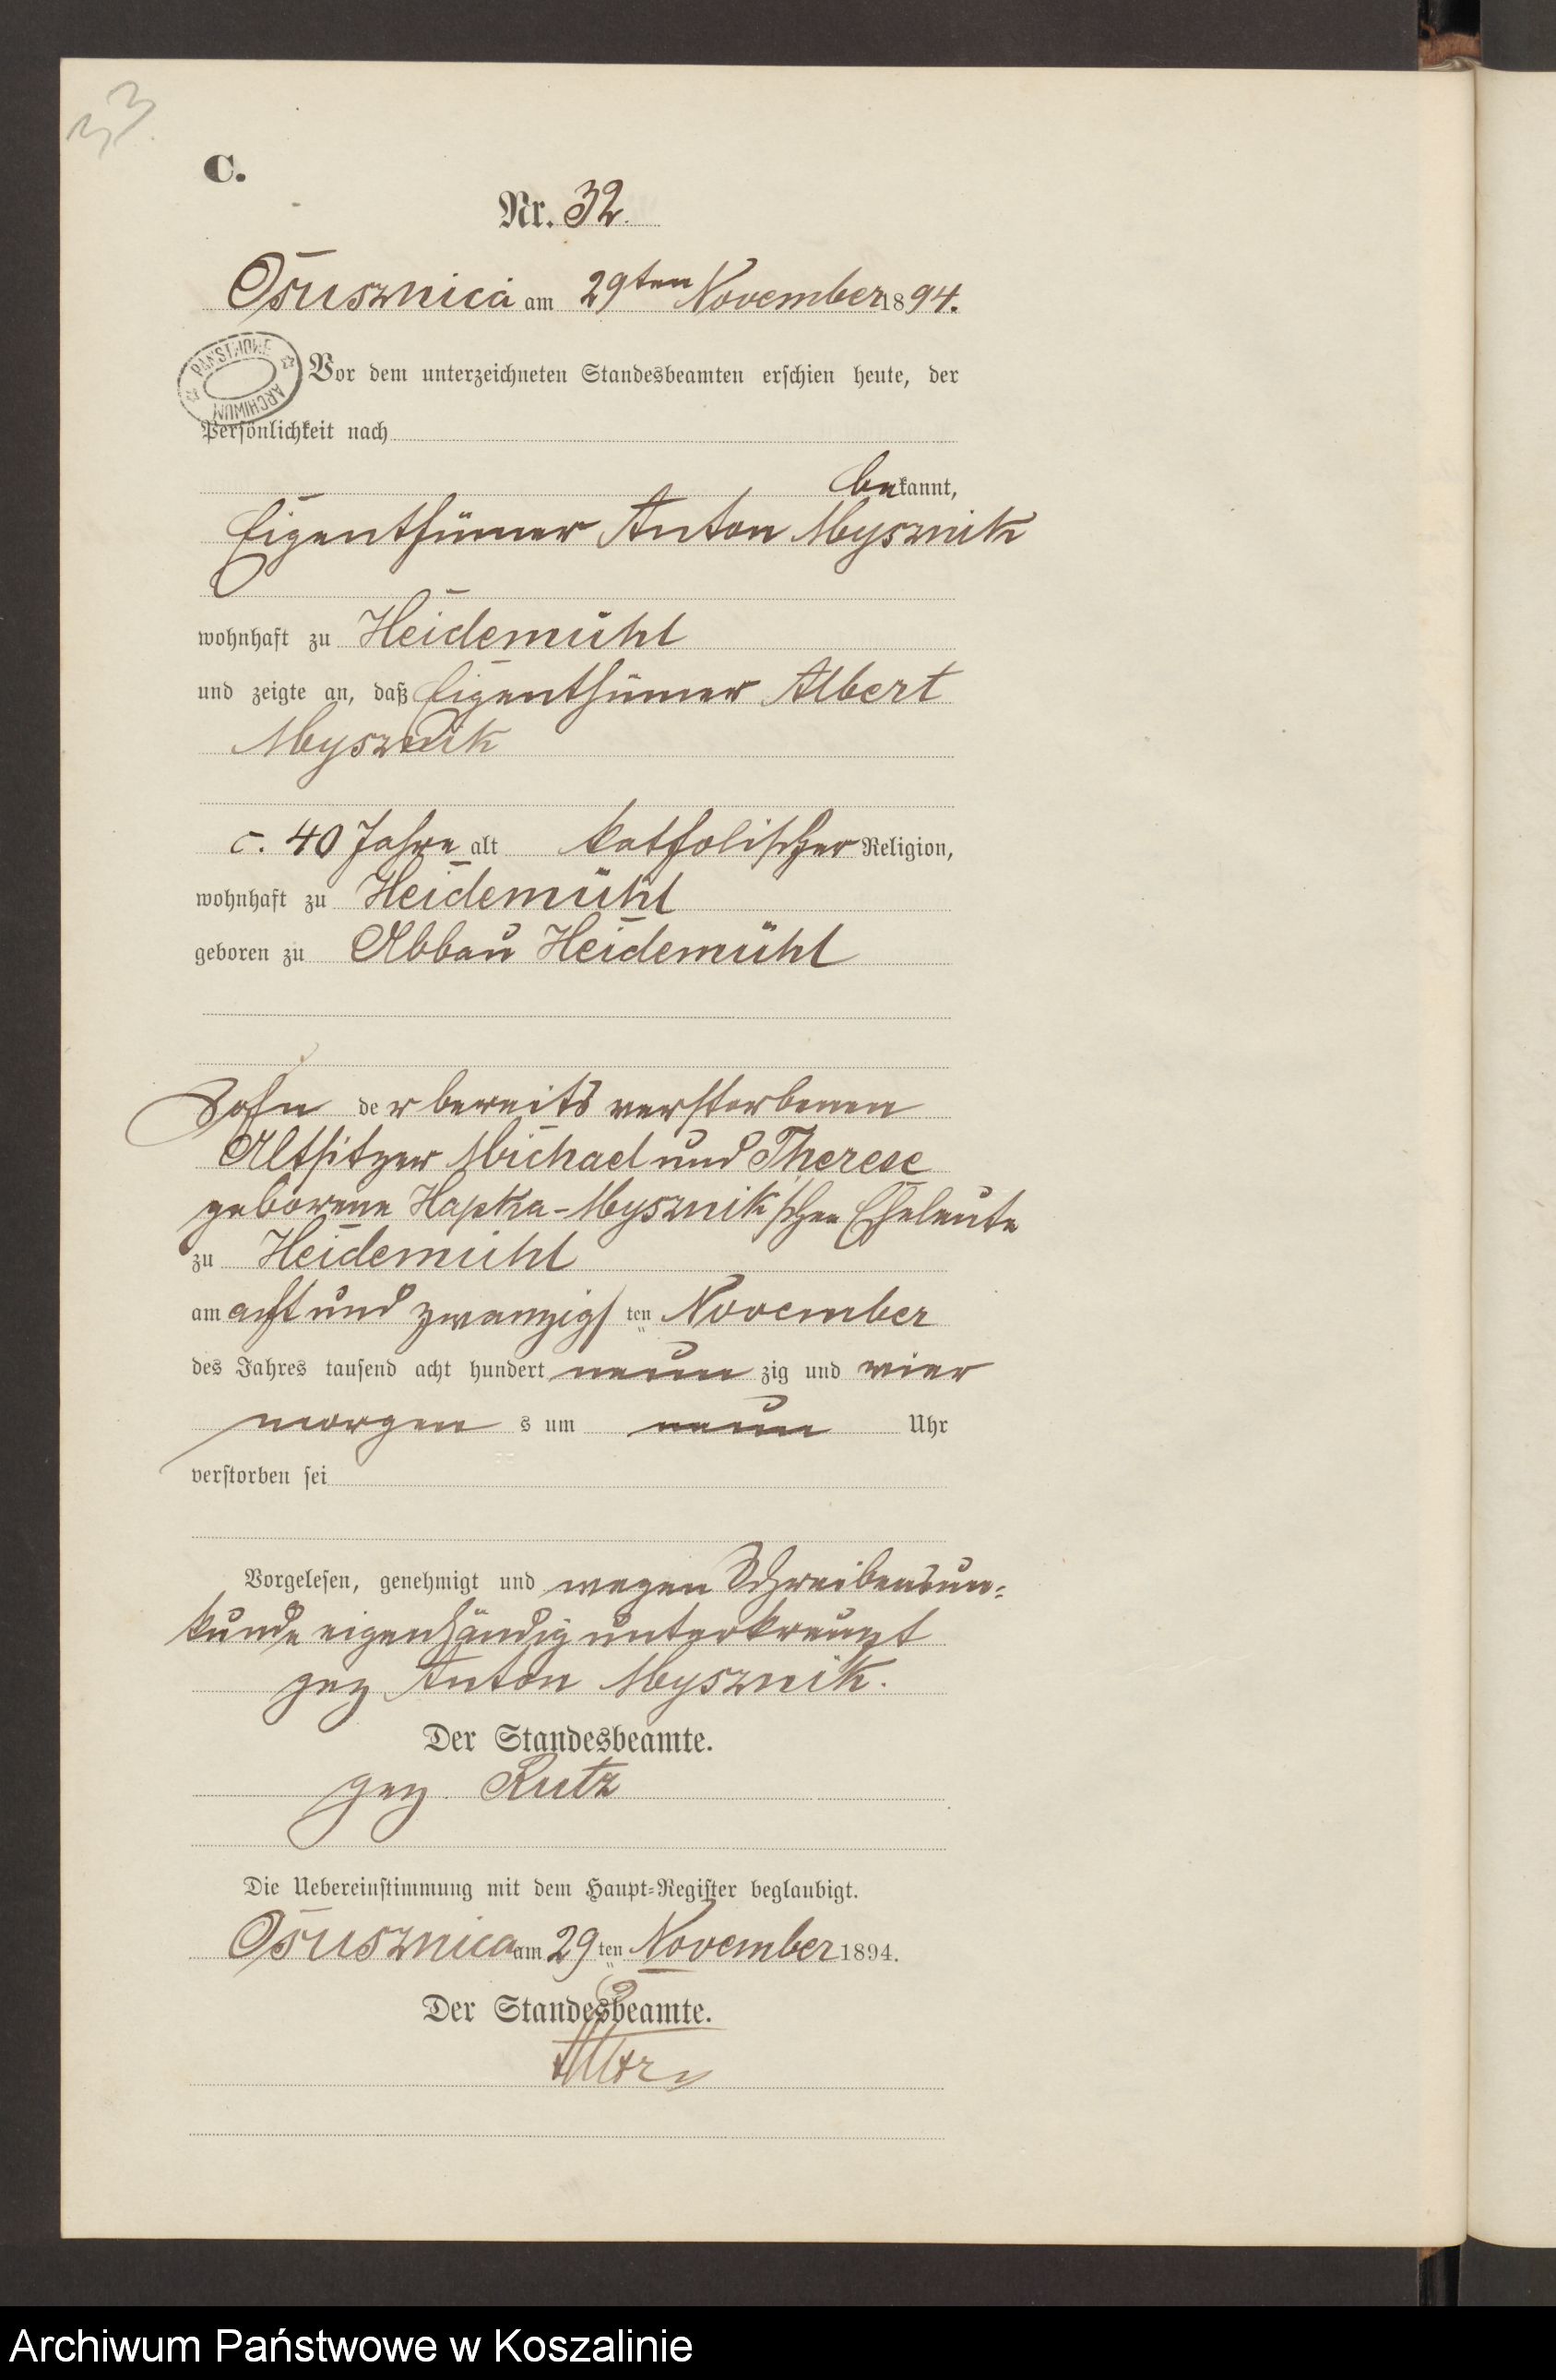 33.
C.
Nr. 32.
Ostusznica am 29ten November 1894.
PAŃSTWOWE ARCHIWUM
Vor dem unterzeichneten Standesbeamten erschien heute, der
Persönlichkeit nach
bekannt,
Eigenthümer Anton Mysznik
wohnhaft zu Heidemühl
und zeigte an, daß Eigenthümer Albert
Mysznik
c. 40 Jahre alt katholischer Religion,
wohnhaft zu Heidemühl
geboren zu Abbau Heidemühl
Sohn der bereits verstorbenen
Altsitzer Michael und Therese
geborene Hapka-Mysznik'schen Eheleute
zu Heidemühl
am acht und zwanzigsten November
des Jahres tausend acht hundert neunzig und vier
morgens um neun Uhr
verstorben sei
Vorgelesen, genehmigt und wegen Schreibensun=
kunde eigenhändig unterkreuzt
gez Anton Mysznik.
Der Standesbeamte.
gez. Rutz
Die Uebereinstimmung mit dem Haupt=Register beglaubigt.
Ostusznica am 29ten November 1894.
Der Standesbeamte.
Archiwum Państwowe w Koszalinie